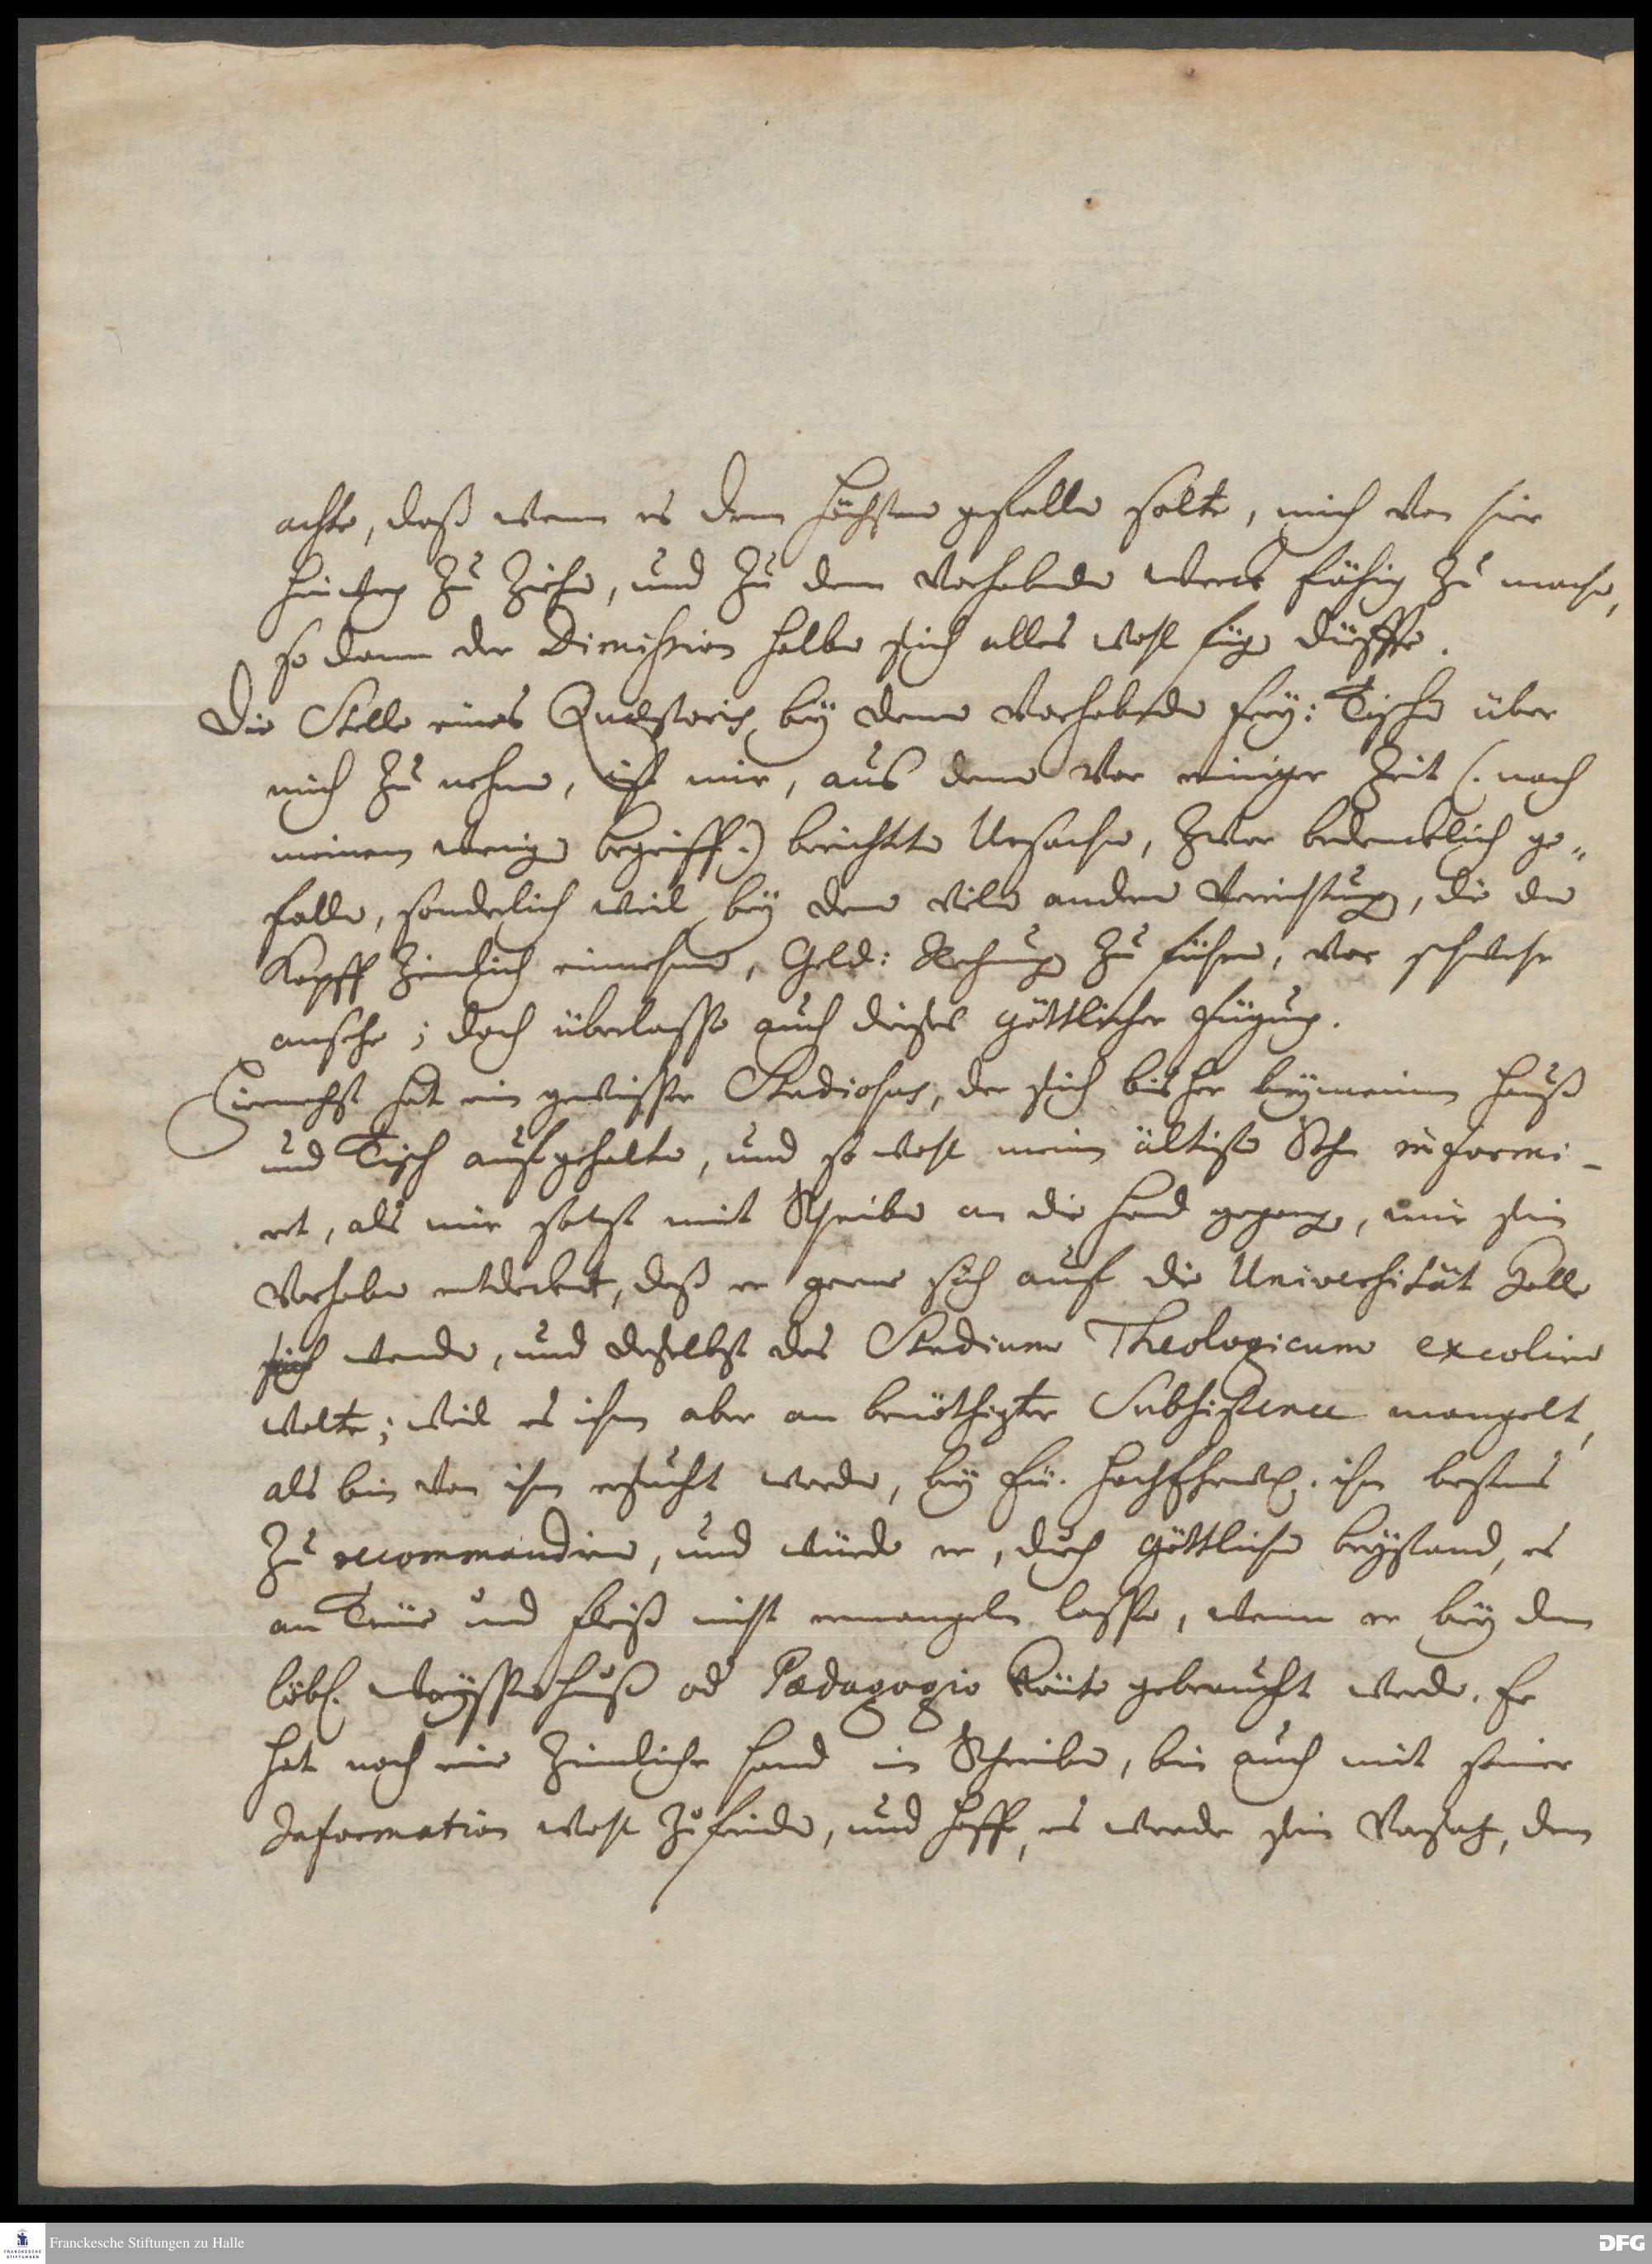 achte, daß wenn es dem Höchsten gefallen solte, mich von hier
hinweg zu ziehen, und zu dem vorhabenden werck fähig zu machen,
so dann der Dimission halben sich alles wohl fügen dürffte.
Die Stelle eines Quæstoris bey denen vorhabenden frey: Tischen über
mich zu nehmen, ist mir, aus denen vor einiger Zeit (. nach
meinem wenigen begriff.) berichtete Ursachen, zwar bedencklich ge„
fallen, sonderlich weil bey denen vielen andern Verrichtungen, die den
Kopff zimlich einnehmen, Geld: Rechnungen zu führen, vor schwehr
ansehe; doch überlasse auch dieses göttlicher Fügung.
Hiernechst hat ein gewisser Studiosus, der sich bisher bey meinem Hauß
und Tisch aufgehalten, und so wohl meine ältiste Söhne informi-
ret, als mir selbst mit Schreiben an die Hand gegangen, mir sein
Vorhaben entdecket, daß er gerne sich auf die Universität Halle
wenden, und daselbst das Studium Theologicum excoliren
wolte; weil es ihm aber an benöthigter Subsistence mangelt,
als bin von ihm ersucht worden, bey Eu. HochEhrw. ihn bestens
zu recommandiren, und würde er, durch göttlichen beystand, es
an Treue und fleiß nicht ermangeln lassen, wenn er bey dem
löbl. Waysenhauß od Pædagogio könte gebraucht werden. Er
hat noch eine zimliche Hand im Schreiben, bin auch mit seiner
Information wohl zufrieden, und hoffe, es werde sein Vorsatz, dem
Franckesche Stiftungen zu Halle
FRANCKESCHE STIFTUNGEN
DFG